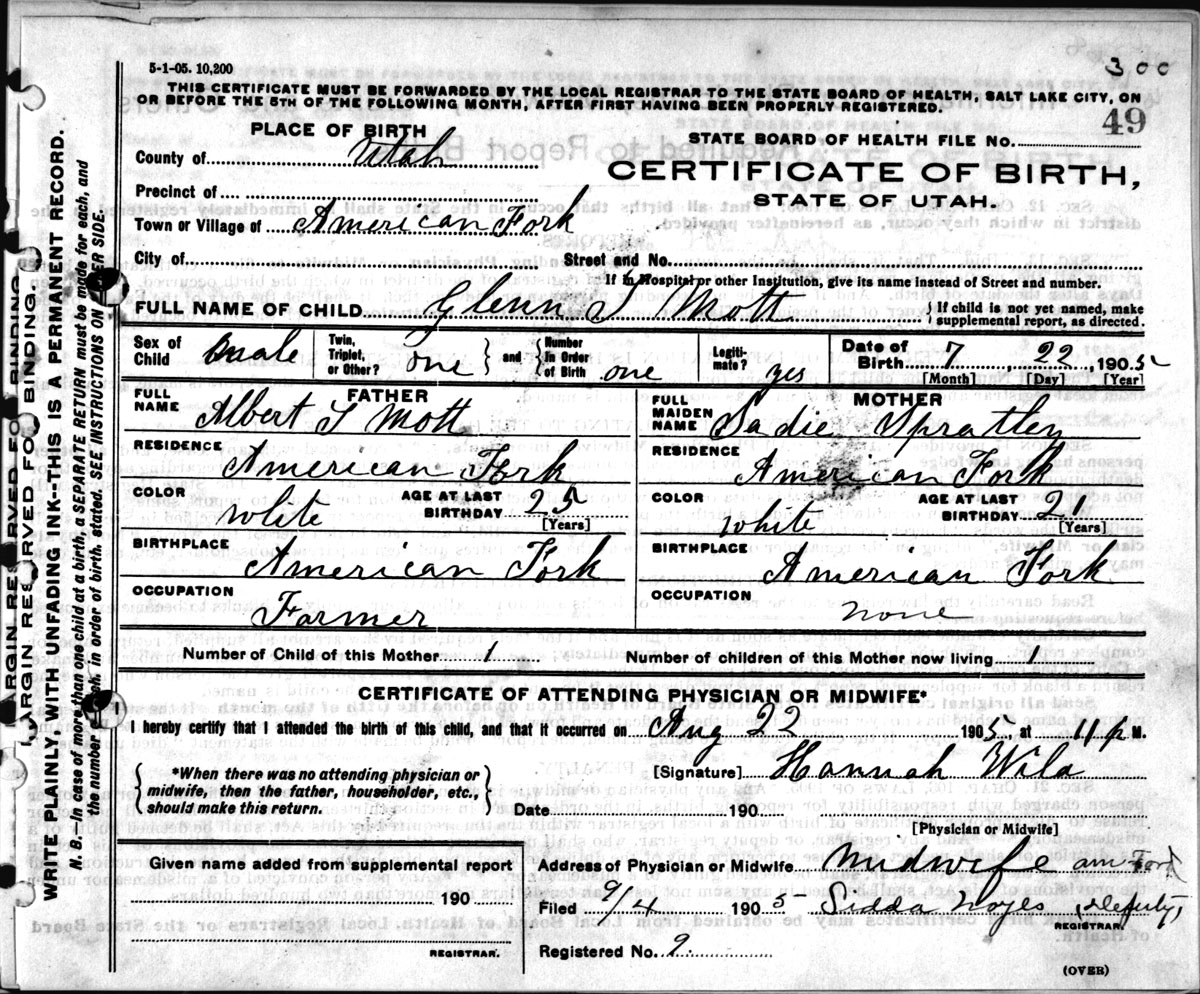 5-1-05. 10,200
300
THIS CERTIFICATE MUST BE FORWARDED BY THE LOCAL REGISTRAR TO THE STATE BOARD OF HEALTH, SALT LAKE CITY, ON
OR BEFORE THE 5TH OF THE FOLLOWING MONTH, AFTER FIRST HAVING BEEN PROPERLY REGISTERED.
49
PLACE OF BIRTH
STATE BOARD OF HEALTH FILE NO.
County of Utah
CERTIFICATE OF BIRTH,
STATE OF UTAH.
Precinct of
Town or Village of American Fork
City of Street and No.
If in Hospital or other Institution, give its name instead of Street and number.
FULL NAME OF CHILD Glenn S Mott { If child is not yet named, make supplemental report, as directed.
Sex of Child male Twin, Triplet, or Other? one and Number in Order of Birth one Legitimate? yes Date of Birth 7 22 1905
[Month] [Day] [Year]
FATHER MOTHER
FULL NAME Albert S Mott FULL MAIDEN NAME Sadie Spratley
RESIDENCE American Fork RESIDENCE American Fork
COLOR White AGE AT LAST BIRTHDAY 25 [Years] COLOR White AGE AT LAST BIRTHDAY 21 [Years]
BIRTHPLACE American Fork BIRTHPLACE American Fork
OCCUPATION Farmer OCCUPATION none
Number of Child of this Mother 1 Number of children of this Mother now living 1
CERTIFICATE OF ATTENDING PHYSICIAN OR MIDWIFE*
I hereby certify that I attended the birth of this child, and that it occurred on Aug 22 1905, at 11 p M.
*When there was no attending physician or midwife, then the father, householder, etc., should make this return.
[Signature] Hannah Wild
Date 190
[Physician or Midwife]
Given name added from supplemental report
190
REGISTRAR.
Address of Physician or Midwife Midwife am Ford
Filed 9/4 1905 Sidda Noyes, Deputy,
REGISTRAR.
Registered No. 9
(OVER)
MARGIN RESERVED FOR BINDING
MARGIN RESERVED FOR BINDING
WRITE PLAINLY WITH UNFADING INK--THIS IS A PERMANENT RECORD.
N. B.--In case of more than one child at a birth, a SEPARATE RETURN must be made for each, and
the number of each, in order of birth, stated. SEE INSTRUCTIONS ON OTHER SIDE.